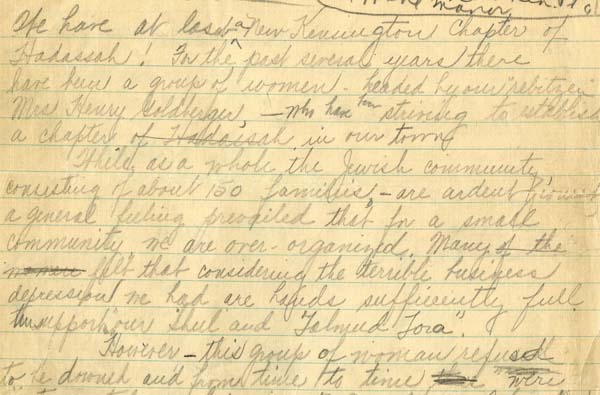 manor
We have at last a New Kensington Chapter of
Hadassah! For the past several years there
have been a group of women - headed by our "rebitzen"
Mrs Henry Goldberger, - who have been striving to establish
a chapter of Hadassah in our town.
While, as a whole the Jewish community,
consisting of about 150 families, - are ardent Zionist
a general feeling prevailed that for a small
community we are over-organized. Many of the
women felt that considering the terrible business
depression we had are hands sufficently full
to support "our shul and "Talmud Tora".
However - this group of woman refused
to be downed and from time to time were